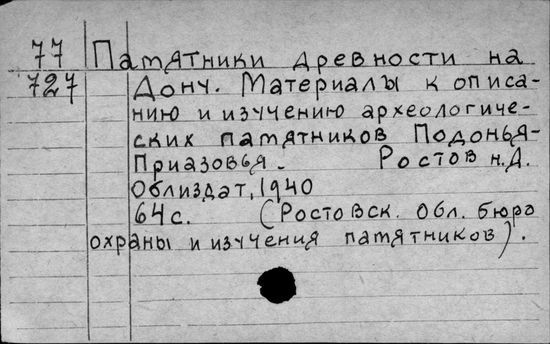 77 Памятники древности на
727 Дону. Материалы к описа-
нию и изучению археологиче-
ских памятников Подонья-
Приазовья. Ростов н.Д.
Облиздат, 1940
64 с. (Ростовск. Обл. бюро
охраны и изучения памятников).